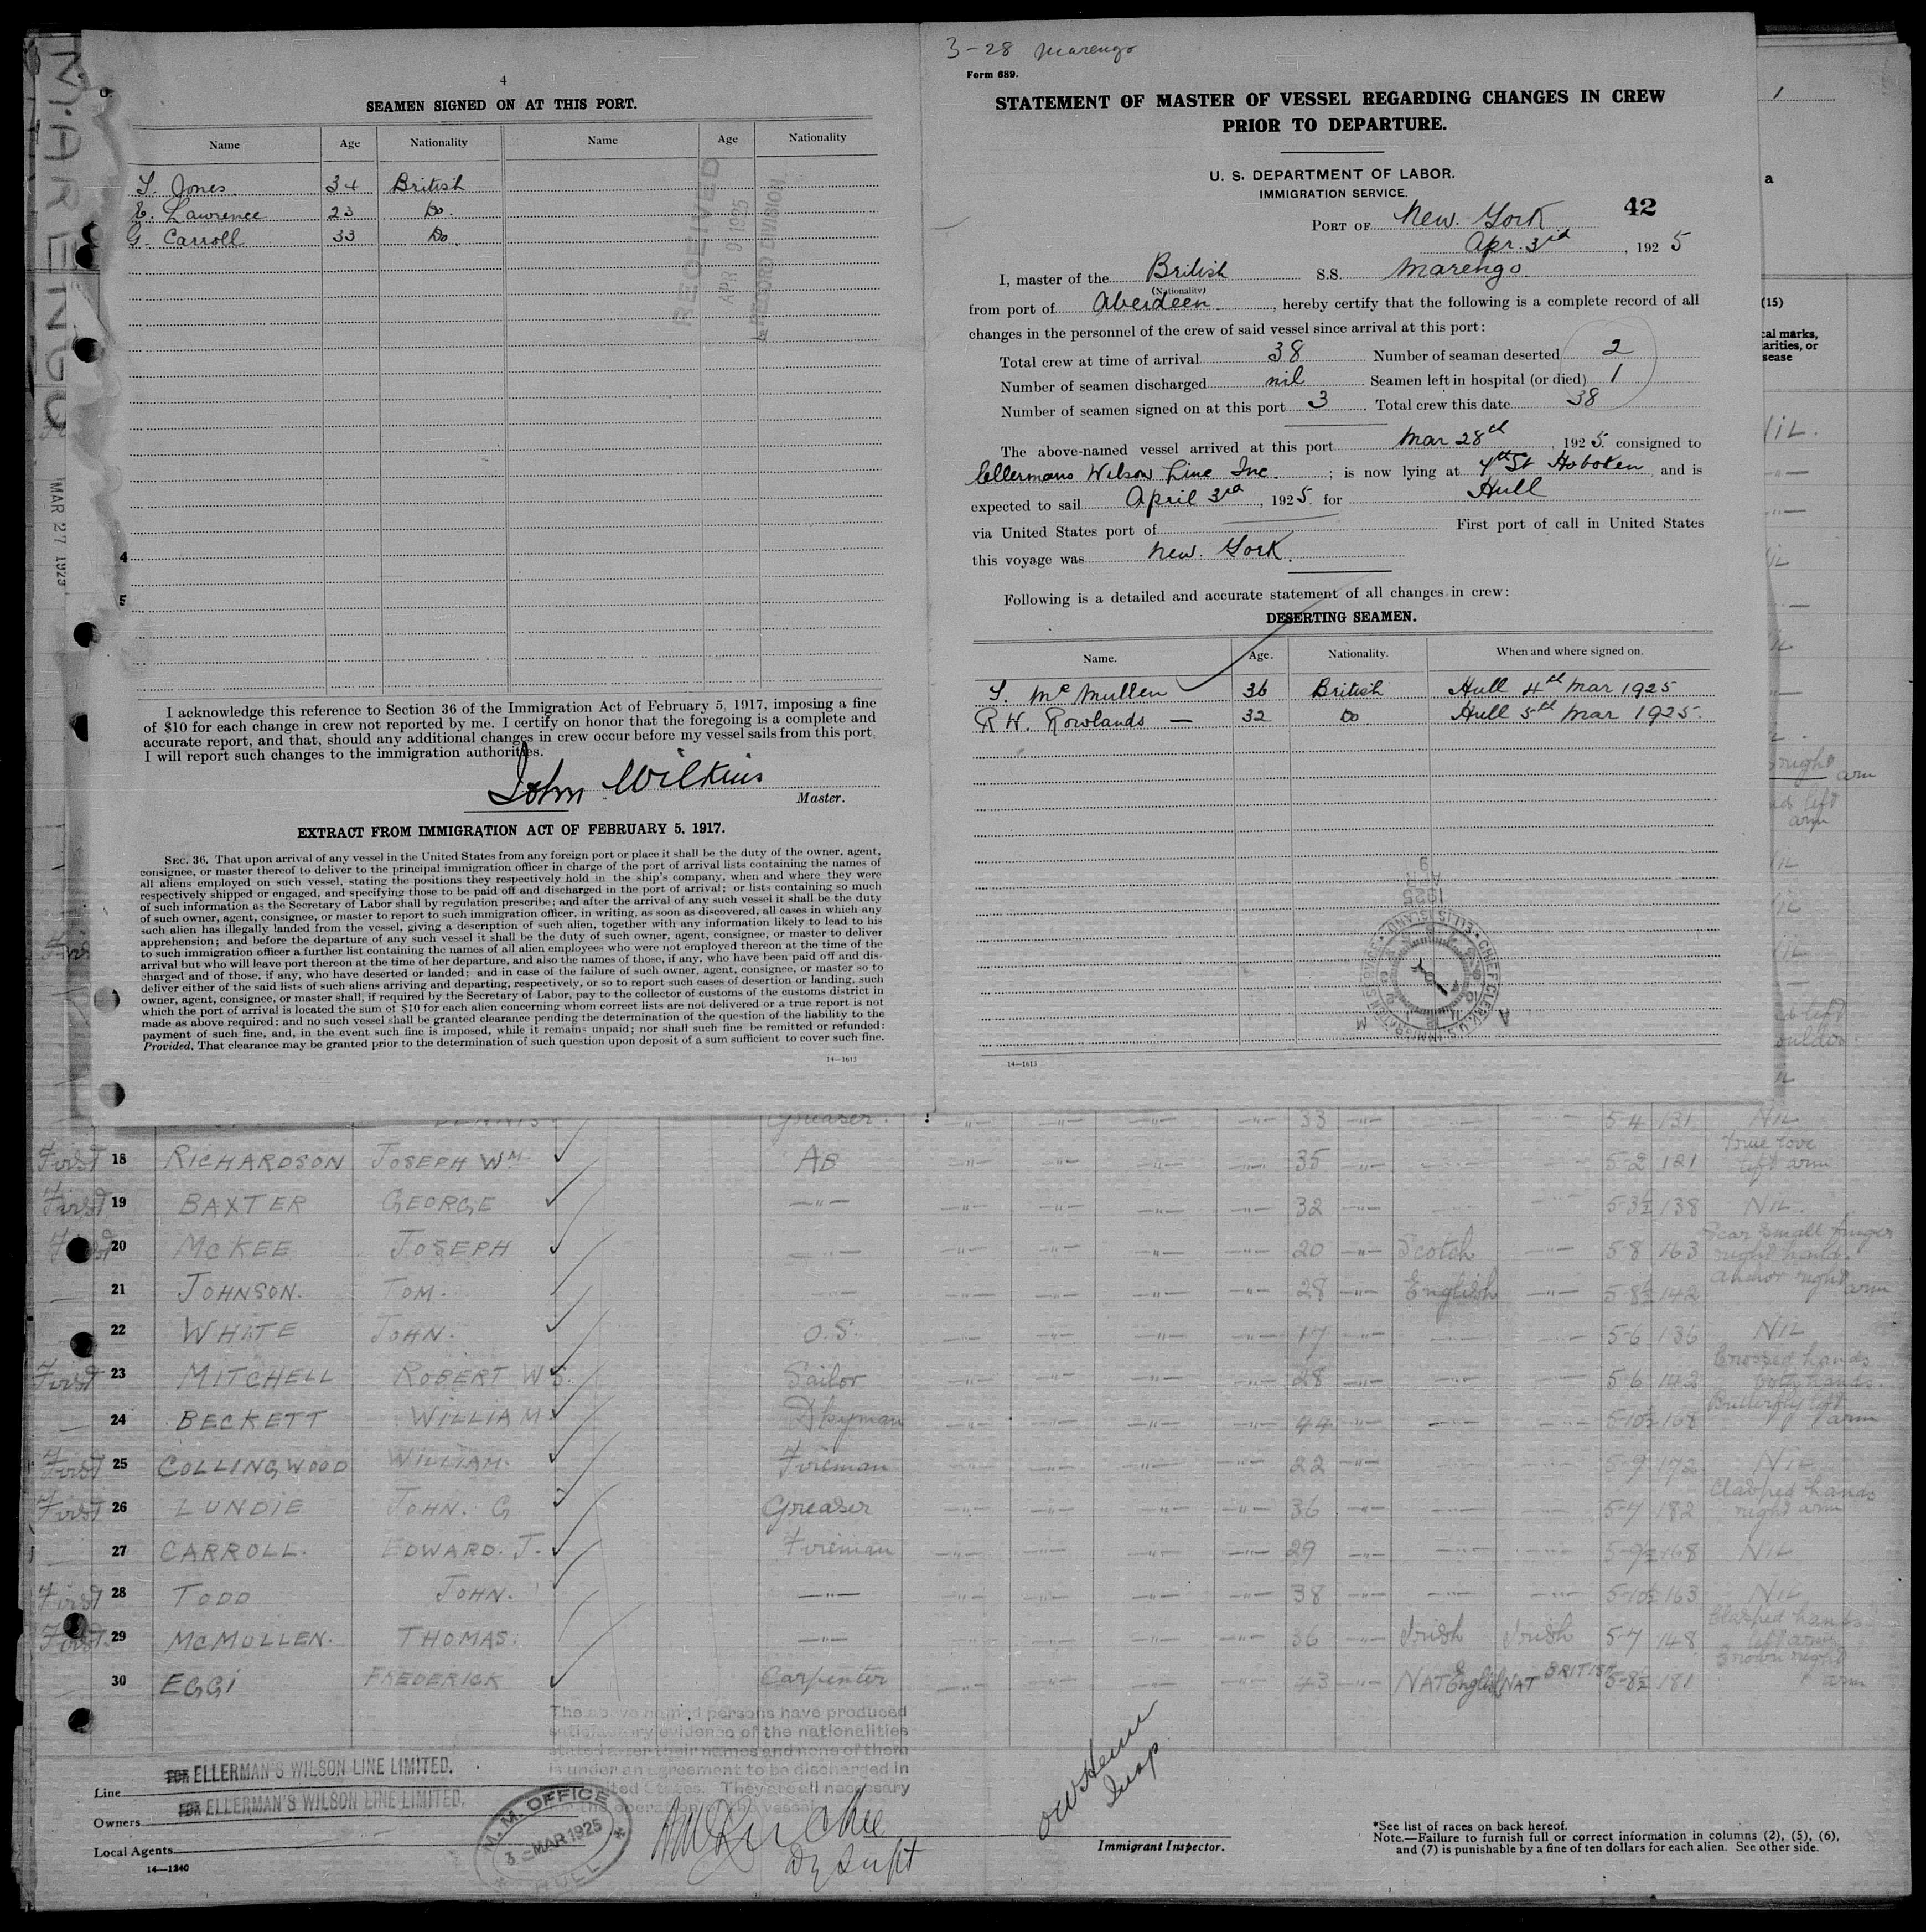 MARENGO
MAR 27 1925
4
SEAMEN SIGNED ON AT THIS PORT.
Name Age Nationality Name Age Nationality
T. Jones 34 British
E. Lawrence 23 Do.
G. Carroll 33 Do
RECEIVED
APR 9 1925
RECORD DIVISION
4
5
I acknowledge this reference to Section 36 of the Immigration Act of February 5, 1917, imposing a fine
of $10 for each change in crew not reported by me. I certify on honor that the foregoing is a complete and
accurate report, and that, should any additional changes in crew occur before my vessel sails from this port,
I will report such changes to the immigration authorities.
John Wilkins
Master.
EXTRACT FROM IMMIGRATION ACT OF FEBRUARY 5, 1917.
SEC. 36. That upon arrival of any vessel in the United States from any foreign port or place it shall be the duty of the owner, agent,
consignee, or master thereof to deliver to the principal immigration officer in charge of the port of arrival lists containing the names of
all aliens employed on such vessel, stating the positions they respectively hold in the ship's company, when and where they were
respectively shipped or engaged, and specifying those to be paid off and discharged in the port of arrival; or lists containing so much
of such information as the Secretary of Labor shall by regulation prescribe; and after the arrival of any such vessel it shall be the duty
of such owner, agent, consignee, or master to report to such immigration officer, in writing, as soon as discovered, all cases in which any
such alien has illegally landed from the vessel, giving a description of such alien, together with any information likely to lead to his
apprehension; and before the departure of any such vessel it shall be the duty of such owner, agent, consignee, or master to deliver
to such immigration officer a further list containing the names of all alien employees who were not employed thereon at the time of the
arrival but who will leave port thereon at the time of her departure, and also the names of those, if any, who have been paid off and dis-
charged and of those, if any, who have deserted or landed; and in case of the failure of such owner, agent, consignee, or master so to
deliver either of the said lists of such aliens arriving and departing, respectively, or so to report such cases of desertion or landing, such
owner, agent, consignee, or master shall, if required by the Secretary of Labor, pay to the collector of customs of the customs district in
which the port of arrival is located the sum of $10 for each alien concerning whom correct lists are not delivered or a true report is not
made as above required; and no such vessel shall be granted clearance pending the determination of the question of the liability to the
payment of such fine, and, in the event such fine is imposed, while it remains unpaid; nor shall such fine be remitted or refunded:
Provided, That clearance may be granted prior to the determination of such question upon deposit of a sum sufficient to cover such fine.
14—1613
3-28 Marengo
Form 689.
STATEMENT OF MASTER OF VESSEL REGARDING CHANGES IN CREW
PRIOR TO DEPARTURE.
U. S. DEPARTMENT OF LABOR.
IMMIGRATION SERVICE.
42
PORT OF New York
Apr. 3rd, 1925
I, master of the British S.S. Marengo
(Nationality)
from port of Aberdeen, hereby certify that the following is a complete record of all
changes in the personnel of the crew of said vessel since arrival at this port:
Total crew at time of arrival 38 Number of seaman deserted 2
Number of seamen discharged nil Seamen left in hospital (or died) 1
Number of seamen signed on at this port 3 Total crew this date 38
The above-named vessel arrived at this port Mar 28th, 1925. consigned to
Ellermans Wilson Line Inc.; is now lying at 7th St Hoboken and is
expected to sail April 3rd, 1925. for Hull
via United States port of First port of call in United States
this voyage was New York.
Following is a detailed and accurate statement of all changes in crew:
DESERTING SEAMEN.
Name. Age. Nationality. When and where signed on.
T. McMullen 36 British Hull 4th Mar 1925
R W. Rowlands — 32 Do Hull 5th Mar 1925.
9 APR 1925
CHIEF CLERK, U.S. IMMIGRATION SERVICE • ELLIS ISLAND •
14—1613
1
a
(15)
cal marks,
arities, or
sease
Nil.
right arm
left arm
Nil
left
shoulder.
Greaser. —"— —"— —"— —"— 33 —"— —"— —"— 5-4 131 NIL
First 18 RICHARDSON JOSEPH WM. AB —"— —"— —"— —"— 35 —"— —"— —"— 5-2 121 True love left arm
First 19 BAXTER GEORGE —"— —"— —"— —"— —"— 32 —"— —"— —"— 5-3½ 138 NIL.
First 20 MCKEE JOSEPH —"— —"— —"— —"— —"— 20 —"— Scotch —"— 5-8 163 Scar small finger right hand.
— 21 JOHNSON. TOM. —"— —"— —"— —"— —"— 28 —"— English —"— 5-8½ 142 Anchor right arm
— 22 WHITE JOHN. O.S. —"— —"— —"— —"— 17 —"— —"— —"— 5-6 136 NIL
First 23 MITCHELL ROBERT W S. Sailor —"— —"— —"— —"— 28 —"— —"— —"— 5-6 142 Crossed hands both hands.
— 24 BECKETT WILLIAM. Dkyman —"— —"— —"— —"— 44 —"— —"— —"— 5-10½ 168 Butterfly left arm
First 25 COLLINGWOOD WILLIAM. Fireman —"— —"— —"— —"— 22 —"— —"— —"— 5-9 172 NIL
First 26 LUNDIE JOHN. G Greaser —"— —"— —"— —"— 36 —"— —"— —"— 5-7 182 Clasped hands right arm
— 27 CARROLL. EDWARD. J. Fireman —"— —"— —"— —"— 29 —"— —"— —"— 5-9½ 168 NIL
First 28 TODD JOHN. —"— —"— —"— —"— —"— 38 —"— —"— —"— 5-10½ 163 NIL
First. 29 MCMULLEN. THOMAS. —"— —"— —"— —"— —"— 36 —"— Irish Irish 5-7 148 Clasped hands left arm
— 30 EGGI FREDERICK Carpenter —"— —"— —"— —"— 43 —"— NAT English NAT BRITISH 5-8½ 181 Crown right arm
The above named persons have produced
satisfactory evidence of the nationalities
stated after their names and none of them
is under an agreement to be discharged in
United States. They are all necessary
for the operation of the vessel
Line FOR ELLERMAN'S WILSON LINE LIMITED.
Owners FOR ELLERMAN'S WILSON LINE LIMITED.
Local Agents
14—1240
M.M. OFFICE
3 - MAR 1925
HULL
Dy Supt
Insp
Immigrant Inspector.
*See list of races on back hereof.
Note.—Failure to furnish full or correct information in columns (2), (5), (6),
and (7) is punishable by a fine of ten dollars for each alien. See other side.